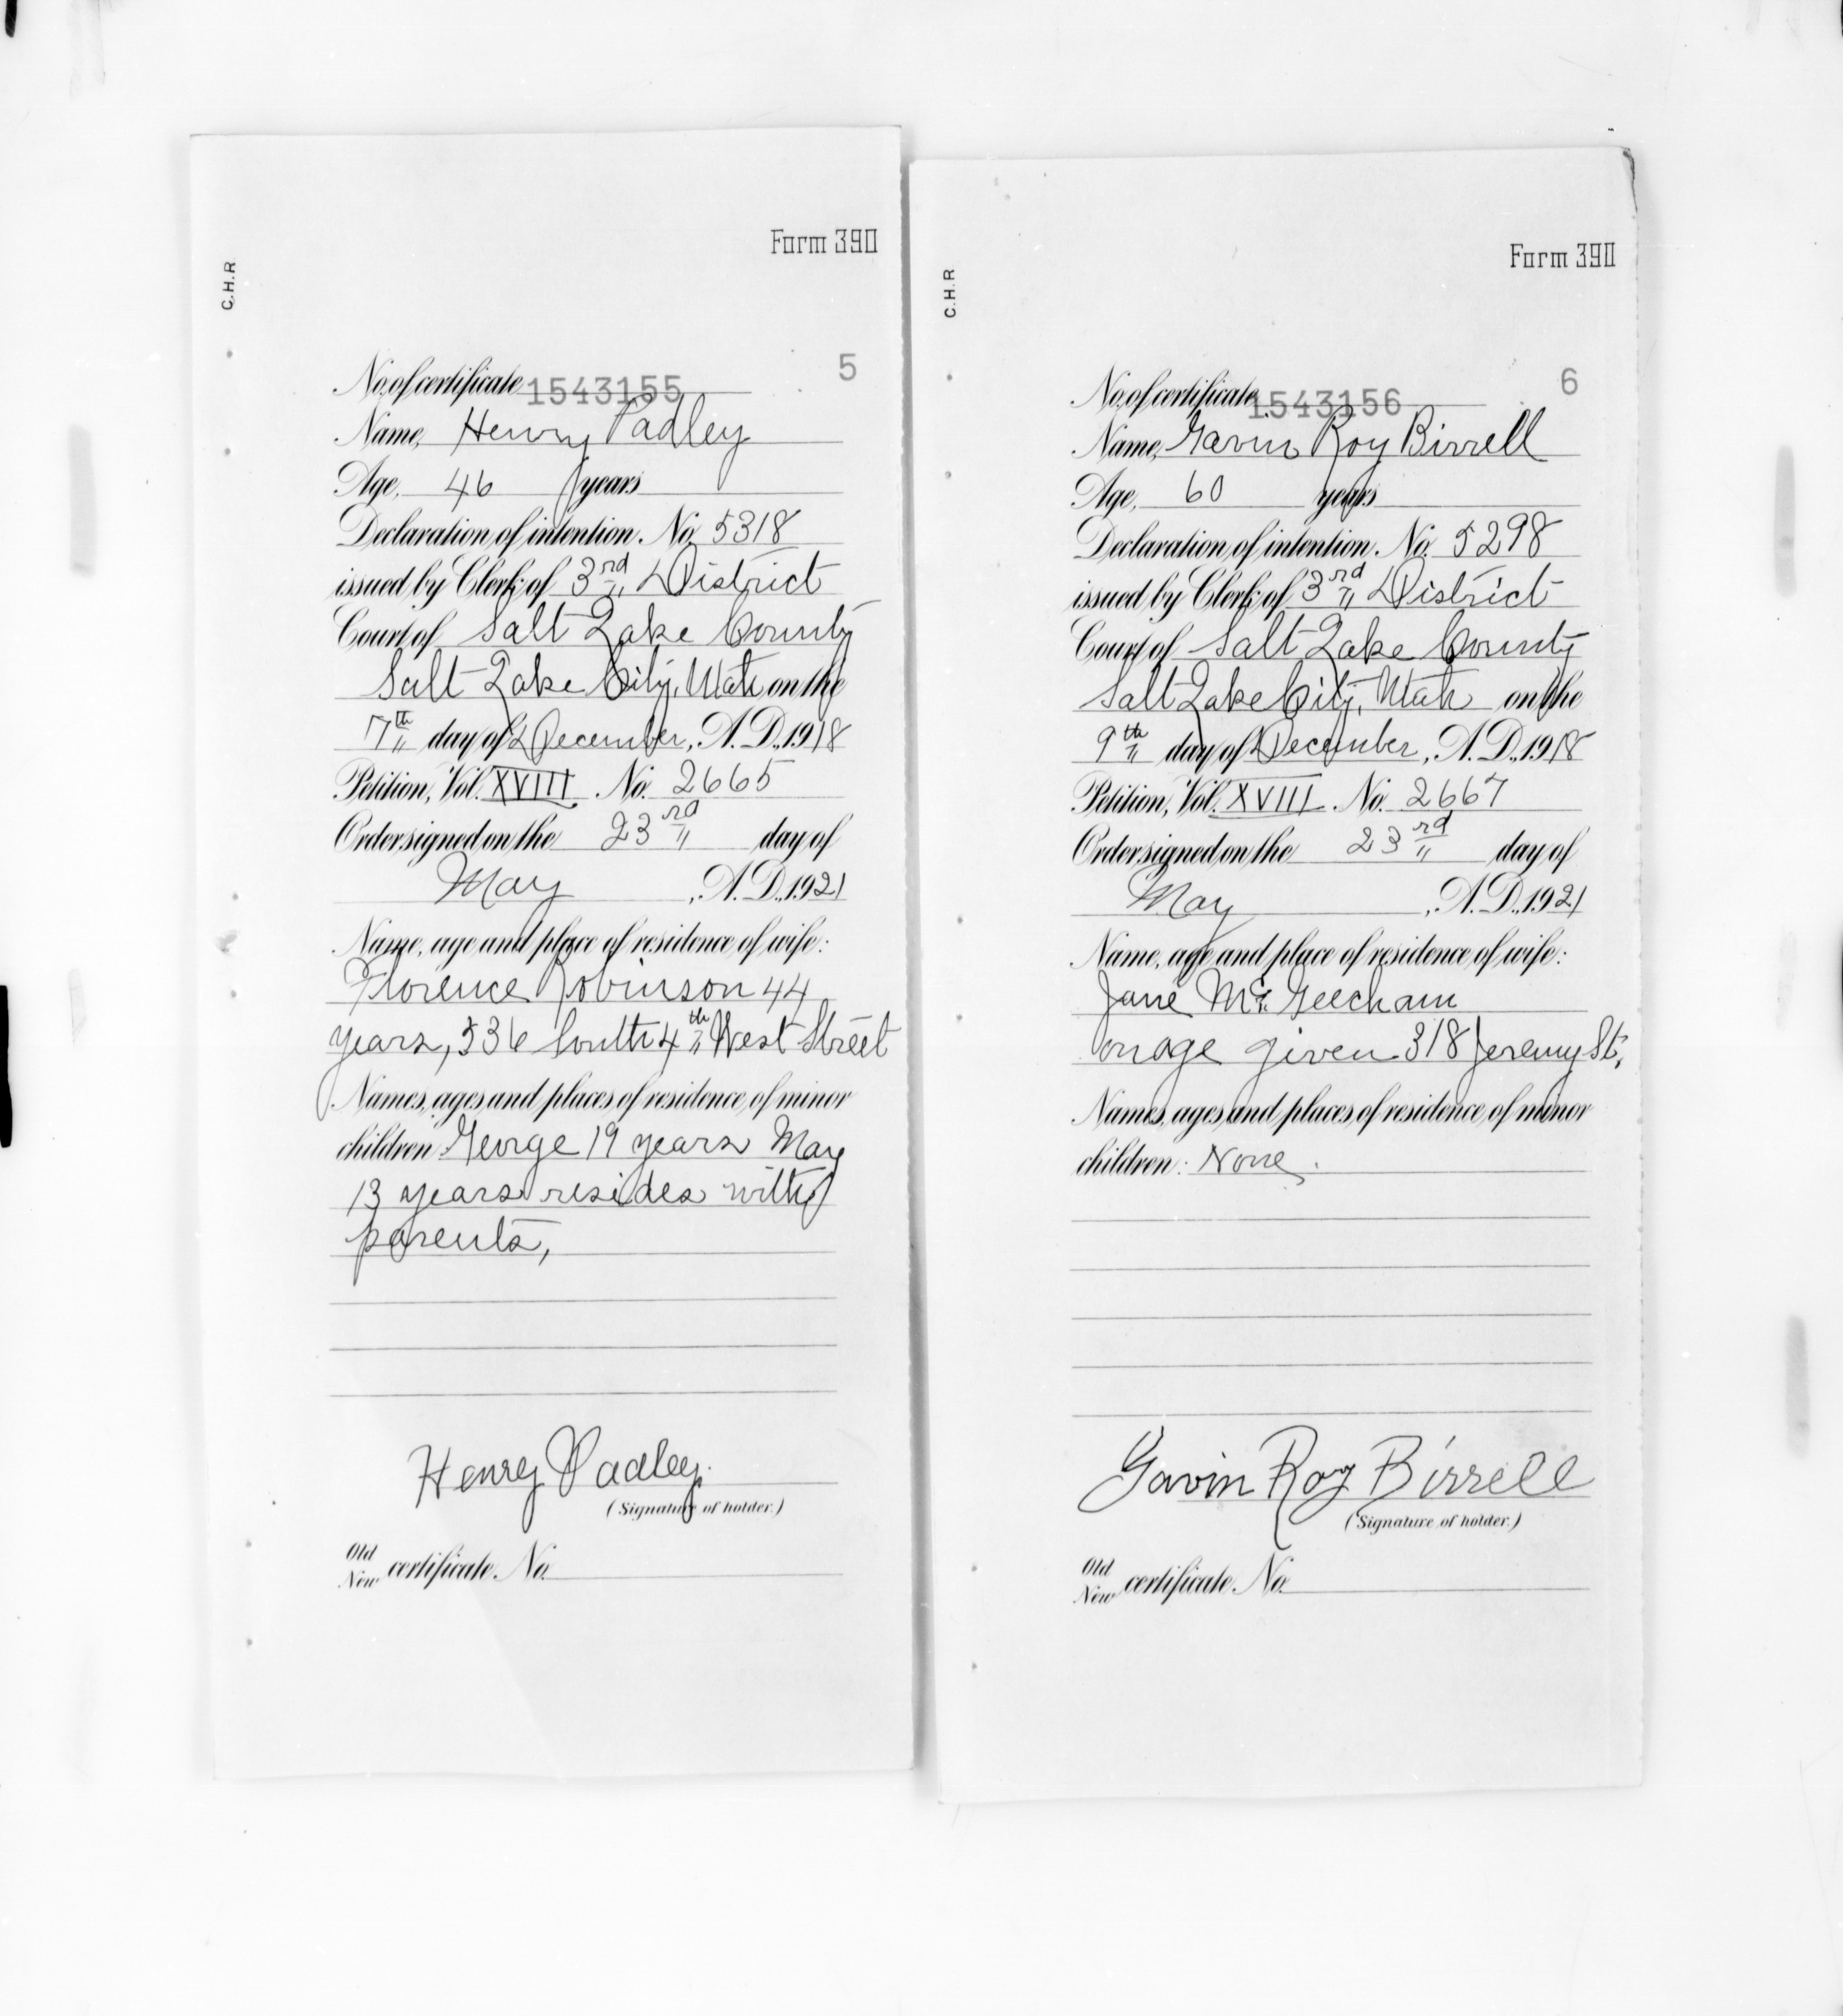 Form 390
C.H.R
5
No. of certificate 1543155
Name, Henry Padley
Age, 46 years
Declaration of intention. No. 5318
issued by Clerk of 3rd District
Court of Salt Lake County
Salt Lake City, Utah on the
7th day of December, A.D., 1918
Petition, Vol. XVIII No. 2665
Order signed on the 23rd day of
May, A.D., 1921
Name, age and place of residence of wife:
Florence Robinson 44
years, 536 South 4th West Street
Names, ages and places of residence of minor
children George 19 years May
13 years resides with
parents,
Henry Padley.
(Signature of holder.)
Old
New certificate No.
Form 390
C.H.R
6
No. of certificate 1543156
Name, Gavin Roy Birrell
Age, 60 years
Declaration of intention. No. 5298
issued by Clerk of 3rd District
Court of Salt Lake County
Salt Lake City, Utah on the
9th day of December, A.D., 1918
Petition, Vol. XVIII. No. 2667
Order signed on the 23rd day of
May, A.D., 1921
Name, age and place of residence of wife:
Jane McGeecham
age given 318 Jeremy St,
Names, ages and places of residence of minor
children: None.
Gavin Roy Birrell
(Signature of holder.)
Old
New certificate No.